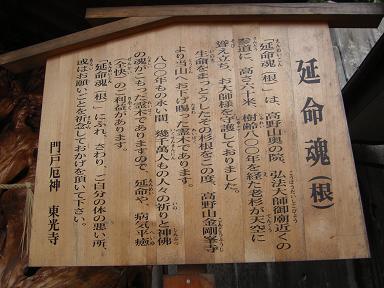 延命魂(根)
「延命魂(根)」は、高野山奥の院、弘法大師御廟近くの
参道に、高さ六十米、樹齢八〇〇年を経た老杉が天空に
聳え立ち、お大師様を守護しておりました。
生命をまっとうしたその杉根をこの度、高野山金剛峯寺
より当山へお下げ賜った霊木であります。
八〇〇年もの永い間、幾千萬人もの人々の祈りと神佛
の魂がこもった霊木でありますので、延命や、病気平癒
(全快)のご利益があります。
「延命魂(根)」にふれ、さわり、ご自分の体の悪い所、
或はお願いごとを祈念しておかげを頂いて下さい。
門戸厄神 東光寺